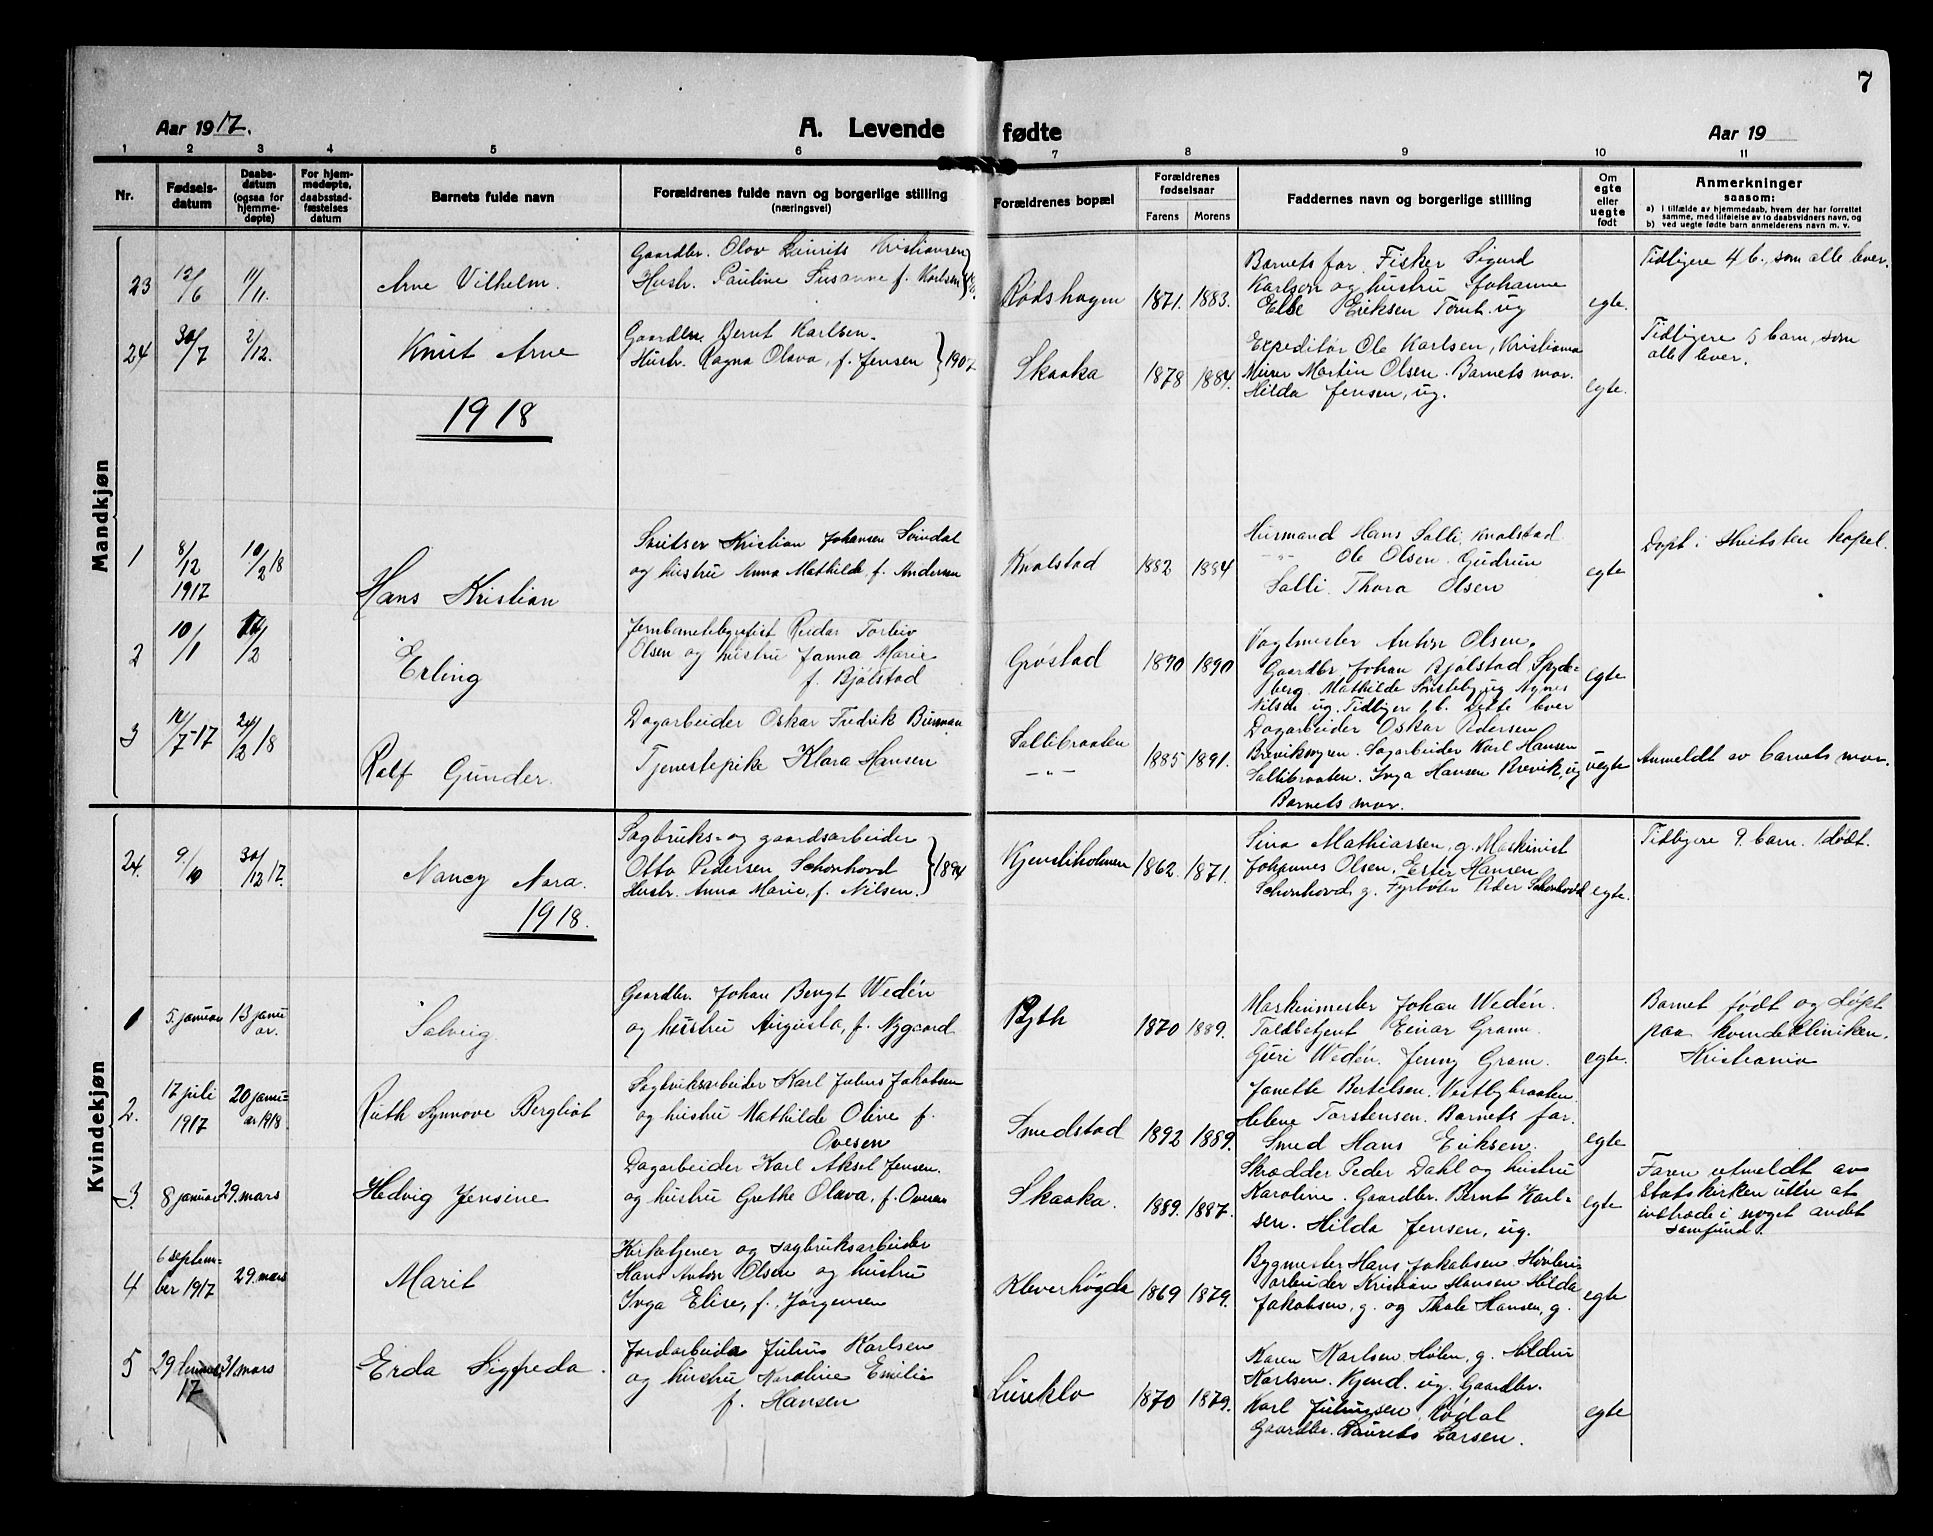 7
Aar 1917.
A. Levende fødte
Aar 19
1 2 3 4 5 6 7 8 9 10 11
Nr.
Fødsels-
datum
Daabs-
datum
(ogsaa for
hjemme-
døpte)
For hjem-
medøpte,
daabsstad-
fæstelses
datum
Barnets fulde navn
Forældrenes fulde navn og borgerlige stilling
(næringsvei)
Forældrenes bopæl
Forældrenes
fødselsaar
Farens Morens
Faddernes navn og borgerlige stilling
Om
egte
eller
uegte
født
Anmerkninger
saasom:
a) i tilfælde av hjemmedaab, hvem der har forrettet
samme, med tilføielse av to daabsvidners navn, og
b) ved uegte fødte barn anmelderens navn m. v.
Mandkjøn
23
12/6
11/11.
Arne Vilhelm.
Gaardbr. Olav Laurits Kristiansen
Hustr. Pauline Susanne f. Karlsen
Rødshagen
1871. 1883.
Barnets far. Fisker Sigurd
Karlsen og hustru Johanne
Else Eriksen Tomt. ug
egte.
Tidligere 4 b., som alle lever.
24
30/7
2/12.
Knut Arne
Gaardbr. Bernt Karlsen.
Hustr. Ragna Olava, f. Jensen } 1907.
Skaaka
1878 1884.
Expeditør Ole Karlsen, Kristiania
Murer Martin Olsen. Barnets mor.
Hilda Jensen, ug.
egte.
Tidligere 5 barn, som
alle lever.
1918
1
8/12
1917
10/2 18
Hans Kristian
Sveitser Kristian Johansen Svindal
og hustru Anna Mathilde, f. Andersen
Knalstad
1882 1884
Husmand Hans Salli, Knalstad
-"- Ole Olsen. Gudrun
Salli. Thora Olsen
egte
Døpt i Hvitsten kapel.
2
10/1
17/2
Erling
Jernbanetelegrafist Reidar Torleiv
Olsen og hustru Janna Marie
f. Bjølstad
Grøstad
1890 1890
Vogtmester Anton Olsen.
Gaardbr Johan Bjølstad Spyde-
berg. Mathilde Susteby ug Agnes
Nilsen ug. Tidligere 1 b. Dette lever
egte
3
12/7-17
24/2 18
Ralf Gunder.
Dagarbeider Oskar Fredrik Burman
Tjenestepike Klara Hansen
Sallibraaten
-"-
1885 1891.
Dagarbeider Oskar Pedersen
Breviksveien. Sagarbeider Karl Hansen
Sallibraaten. Inga Hansen Brevik, ug
Barnets mor.
uegte
Anmeldt av barnets mor.
Kvindekjøn
24.
9./10
30/12 17.
Nancy Nora.
Sagbruks- og gaardsarbeider
Otto Pedersen Schonhovd
Hustr. Anna Marie, f. Nilsen. } 1894
Kjensliholmen
1862. 1871.
Sina Mathiassen, g. Maskinist
Johannes Olsen. Ester Hansen
Schonhovd, g. Fyrbøter Peder Schonhovd
egte.
Tidligere 9. barn. 1 dødt.
1918.
1
5. januar
13 janu-
ar.
Solveig.
Gaardbr. Johan Bengt Wedén
og hustru Augusta, f. Nygaard
Ryth
1870 1889.
Maskinmester Johan Wedén.
Toldbetjent Einar Gram.
Guri Wedén. Jenny Gram.
egte.
Barnet født og døpt
paa kvindekliniken.
Kristiania
2.
17 juli
1917
20 janu-
ar 1918
Ruth Synnove Bergliot
Sagbruksarbeider Karl Julius Jakobsen
og hustru Mathilde Olive f.
Ovesen
Smedstad
1892 1889.
Janette Bertelsen. Vestbybraaten
Helene Torstensen. Barnets far.
Smed Hans Eriksen.
egte
3.
8 januar
29. mars
Hedvig Jensine
Dagarbeider Karl Aksel Jensen.
og hustru Grethe Olava, f. Ovesen
Skaaka.
1889. 1887.
Skrædder Peder Dahl og hustru
Karoline. Gaardbr. Bernt Karl-
sen. Hilda Jensen, ug.
egte
Faren utmeldt av
statskirken uten at
indtræde i noget andet
samfund.
4
6 septem-
ber 1917
29. mars
Marit
Kirketjener og sagbruksarbeider
Hans Anton Olsen og hustru
Inga Elise, f. Jørgensen
Kleverhøgda
1869 1879.
Bygmester Hans Jakobsen. Høvleri-
arbeider Kristian Hansen Hilda
Jakobsen, g. og Thale Hansen, g.
egte
5
29
17
31. mars
Erda Sigfreda.
Jordarbeider Julius Karlsen
og hustru Karoline Emilie
f. Hansen
Lureklo
1870 1879.
Karen Karlsen Hølen, g. Haldur
Karlsen. Kjend. ug. Gaardbr.
Karl Juliussen Rødal
Gaardbr. Laurits Larsen.
egte